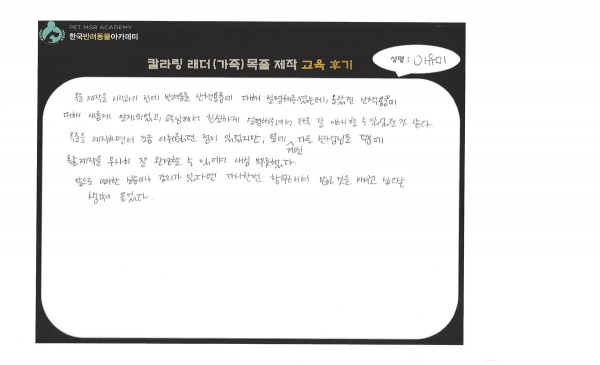 PET MGR ACADEMY
한국반려동물아카데미
칼라링 래더(가죽) 목줄 제작 교육 후기
성명 : 이유미
목줄 제작을 시작하기 전에 반려동물 산책용품에 대해 설명해주셨는데, 몰랐던 산책용품에
대해 새롭게 알게되었고, 교수님께서 친절하게 설명해주셔서 더욱 잘 이해할 수 있었던 것 같다.
목줄을 제작하면서 조금 어려웠던 점이 있었지만, 옆에 계신 다른 선생님들 덕분에
목줄제작을 무사히 잘 완성할 수 있어서 내심 뿌듯했다.
앞으로 이러한 강의가 있다면 다시한번 참여해서 많은 것을 배우고 싶다는
생각이 들었다.